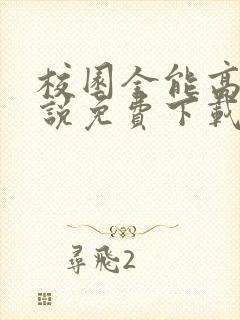 校園全能高
說免費下載
尋飛2